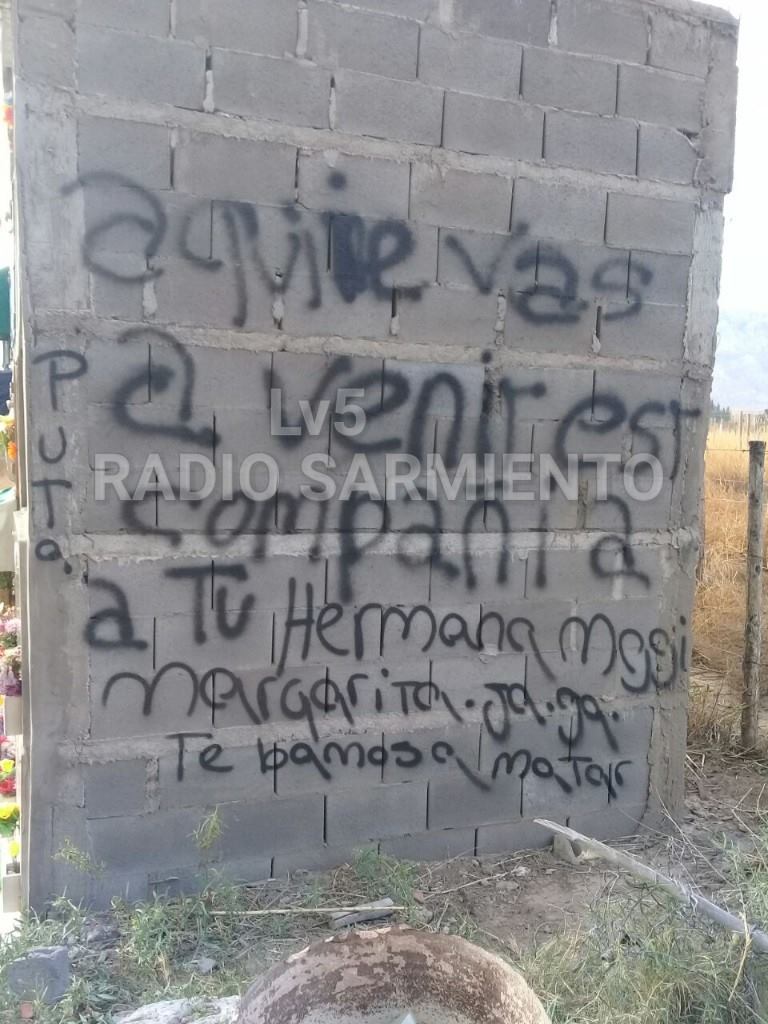 aqui te vas
a venir est
compañia
a Tu Hermana Meggi
Margarita. Ja. ja.
Te bamos a matar
PUTA
Lv5
RADIO SARMIENTO